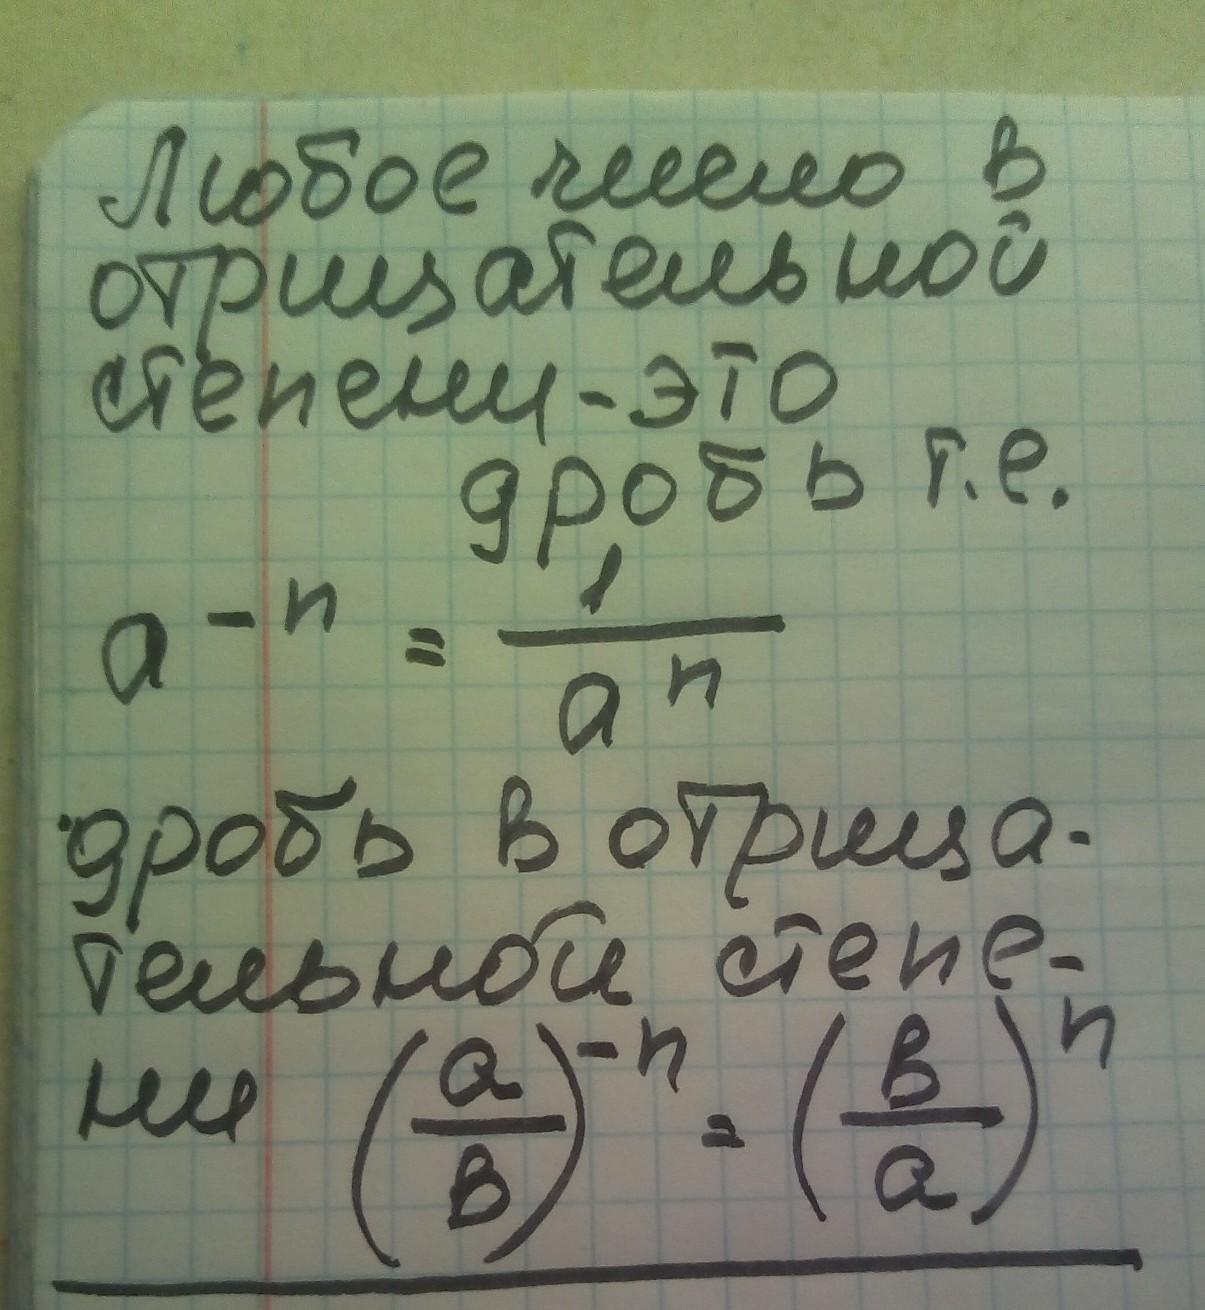 Любое число в
отрицательной
степени-это
дробь т.е.
a⁻ⁿ = 1/aⁿ
дробь в отрица-
тельной степе-
ни (a/в)⁻ⁿ = (в/a)ⁿ